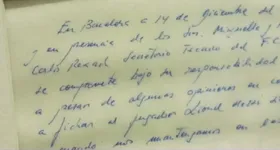 En Barcelona, a 14 de diciembre del
y en presencia de los Srs. Minguella y
Carles Rexach, Secretario Técnico del F.C.
se compromete bajo su responsabilidad
a pesar de algunas opiniones en co
a fichar al jugador Lionel Messi
cuando nos mantengamos en las